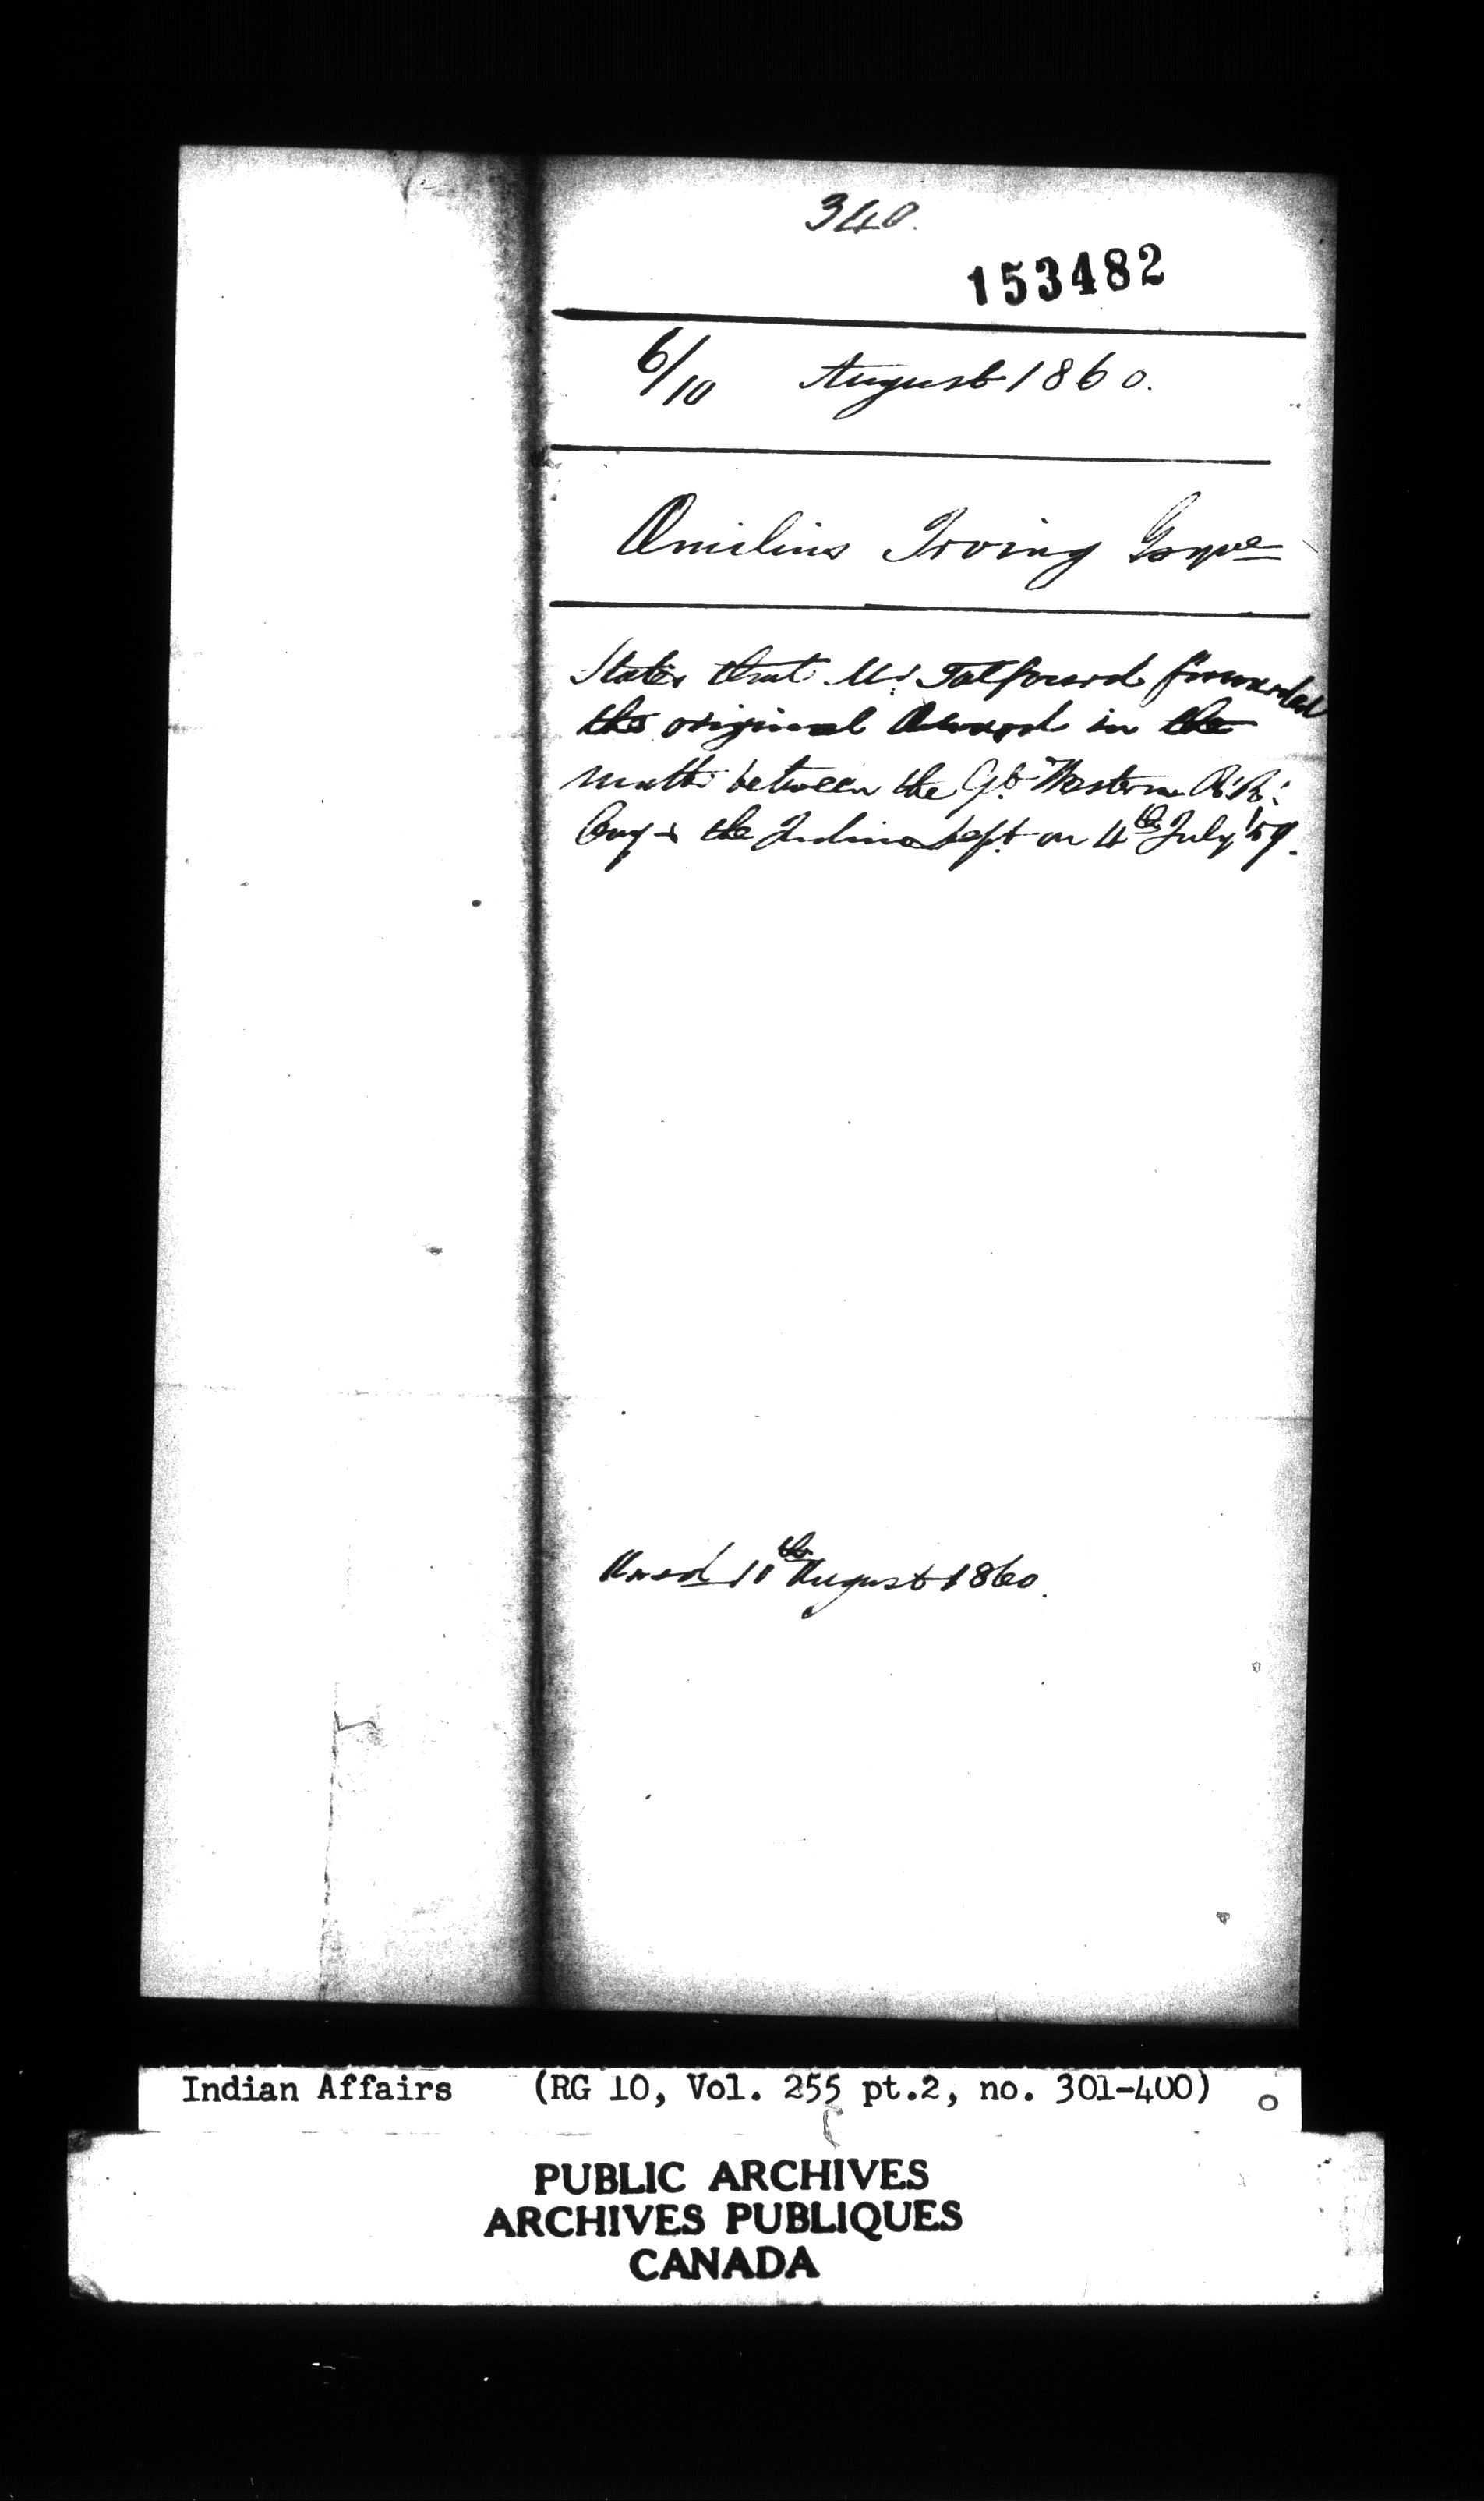 340.
153482
6/10 August 1860.
Æmilius Irving Esqre
States that Mr Talfourd forwarded
the original Award in the
matter between the Gt Western R.R.
Coy & the Indian Dept on 4th July '59.
Ansd 11th August 1860.
Indian Affairs (RG 10, Vol. 255 pt.2, no. 301-400)
PUBLIC ARCHIVES
ARCHIVES PUBLIQUES
CANADA